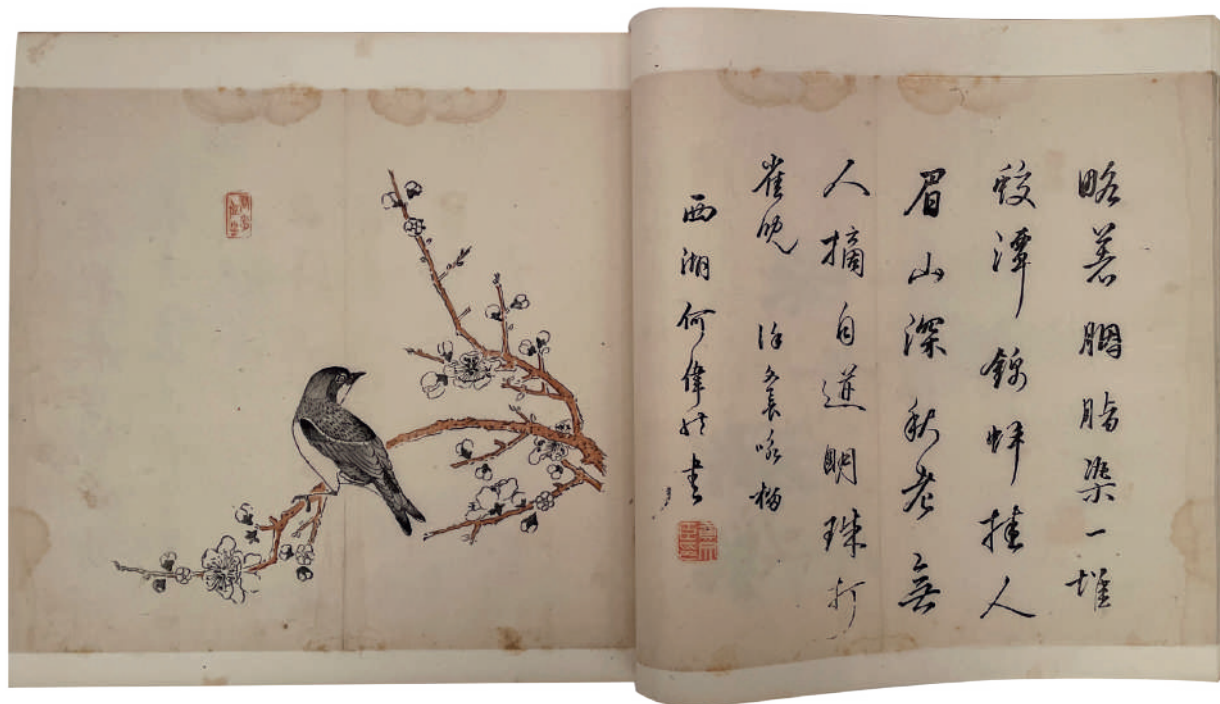 略著胭脂染一堆
蛟潭錦蚌挂人
眉山深秋老無
人摘自迸明珠打
雀兒 徐文長咏榴
西湖何偉然書